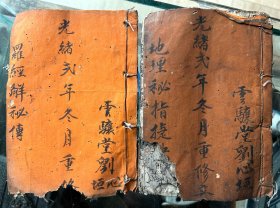 光緒弍年冬月重修
雲驥堂劉心垣
羅經解秘傳
光緒弍年冬月重修
雲驥堂劉心垣
地理秘指徑